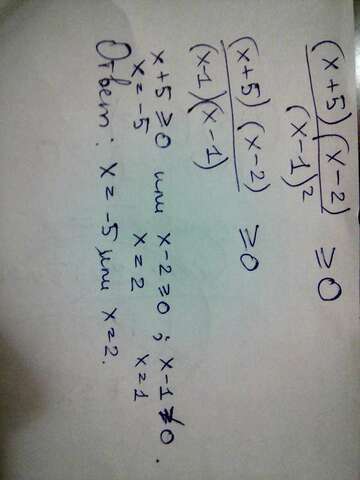 (x+5)(x-2)
(x-1)² ≥0
(x+5)(x-2)
(x-1)(x-1) ≥0
x+5≥0 или x-2≥0 ; x-1≠0.
x=-5 x=2 x=1
Ответ: x=-5 или x=2.